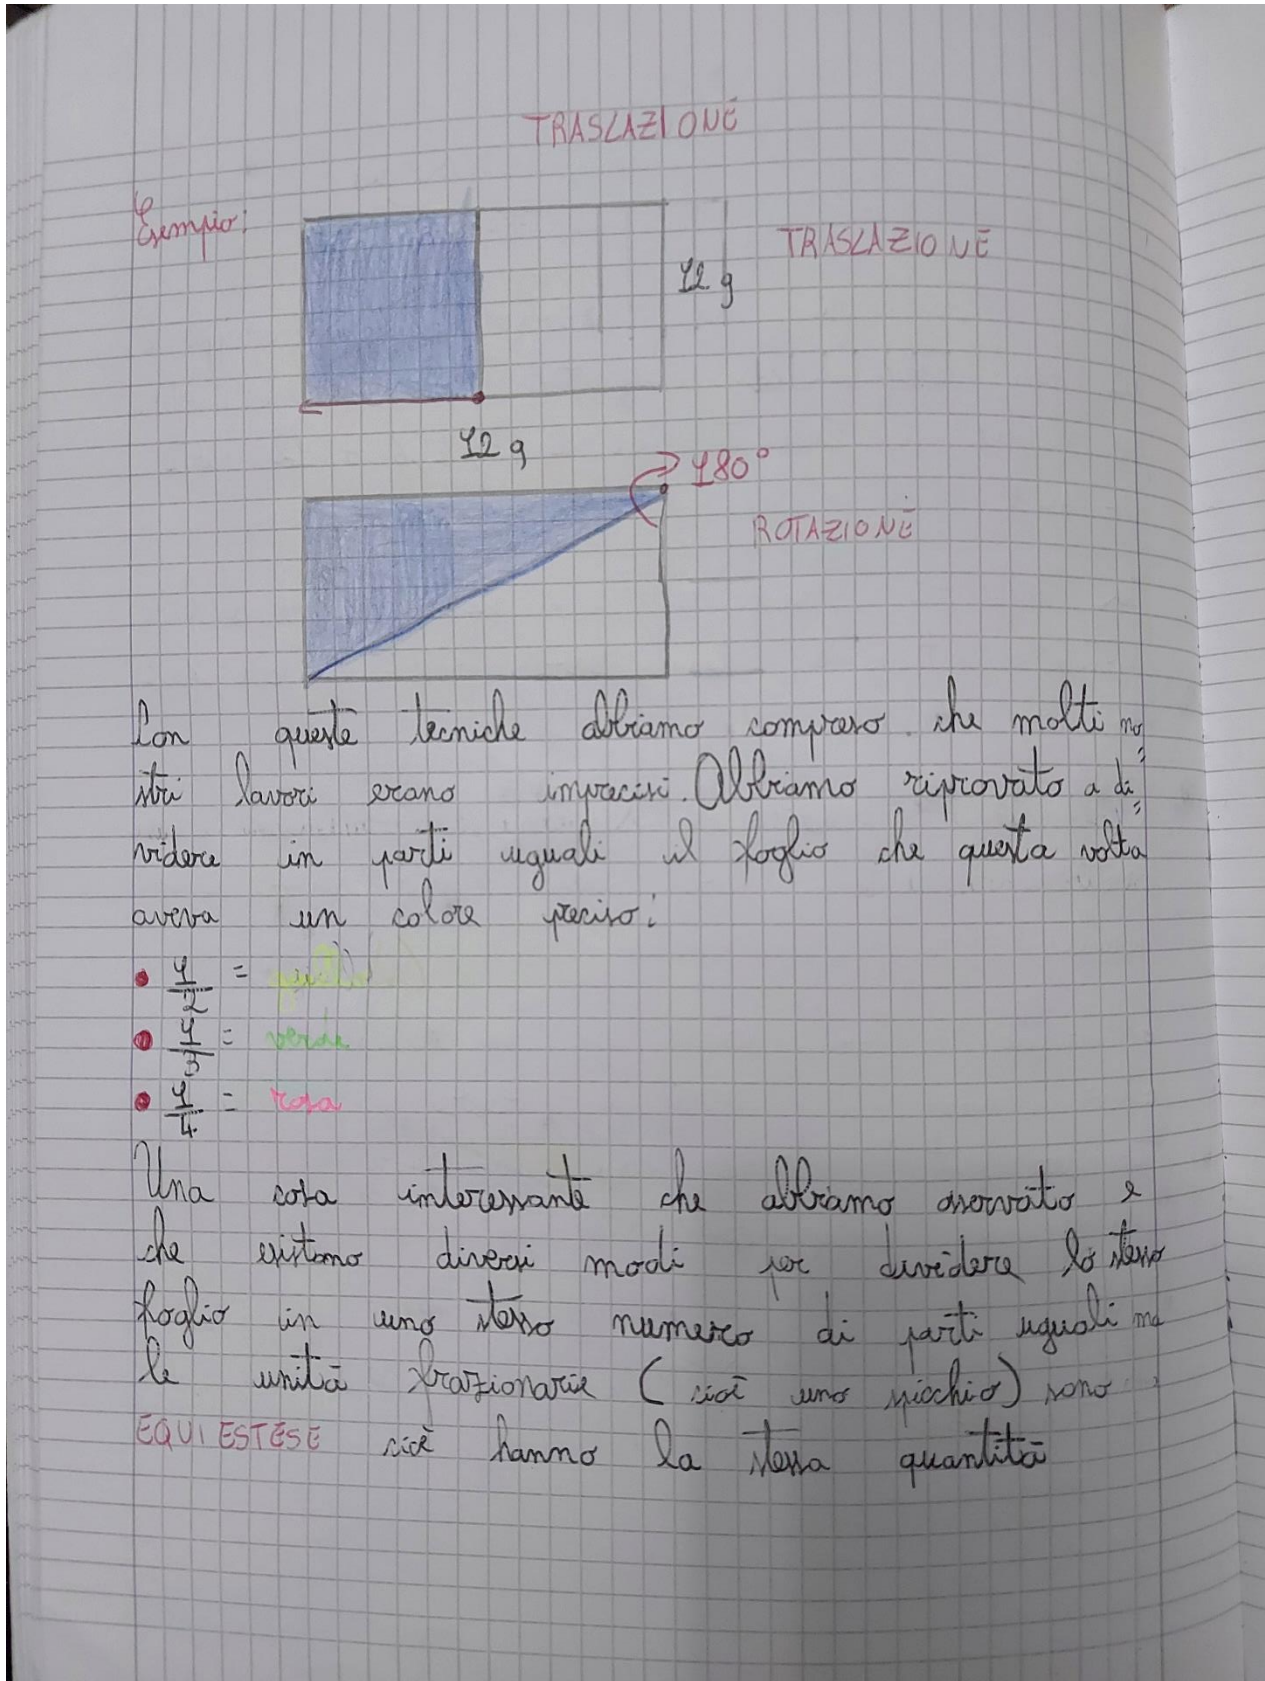 TRASLAZIONE
Esempio:
TRASLAZIONE
12 q
12 q
180°
ROTAZIONE
Con queste tecniche abbiamo compreso che molti no
stri lavori erano imprecisi. Abbiamo riprovato a di
videre in parti uguali il foglio che questa volta
aveva un colore preciso:
• 1/2 = giallo
• 1/3 = verde
• 1/4 = rosa
Una cosa interessante che abbiamo osservato e
che esistono diversi modi per dividere lo stesso
foglio in uno stesso numero di parti uguali ma
le unità frazionarie (cioè uno spicchio) sono
EQUIESTESE cioè hanno la stessa quantità